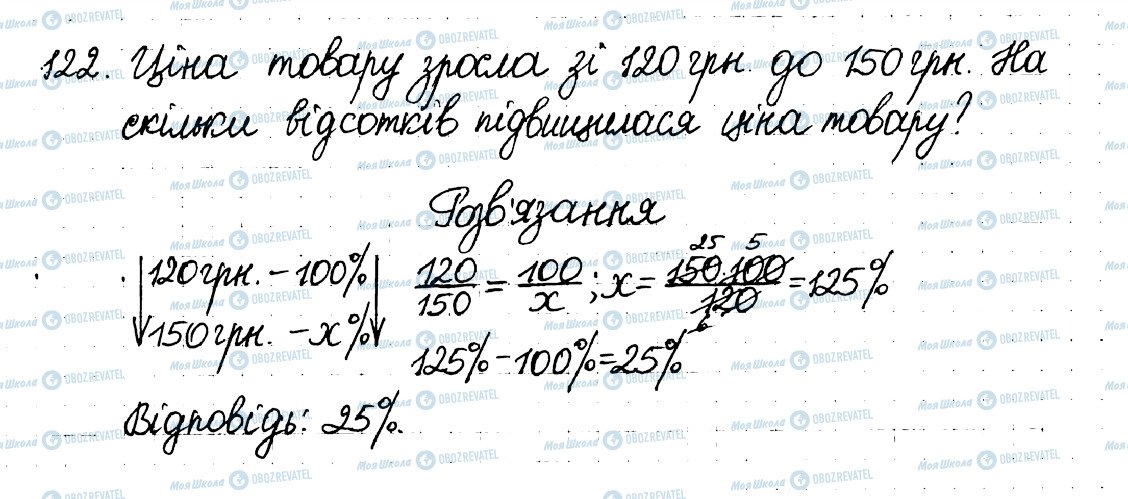 122. Ціна товару зросла зі 120 грн. до 150 грн. На
скільки відсотків підвищилася ціна товару?
Розв'язання
120 грн. – 100%
150 грн. – x%
120/150 = 100/x ; x = 150·100/120 = 125%
25 5
6
125% – 100% = 25%
Відповідь: 25%.
МояШкола OBOZREVATEL